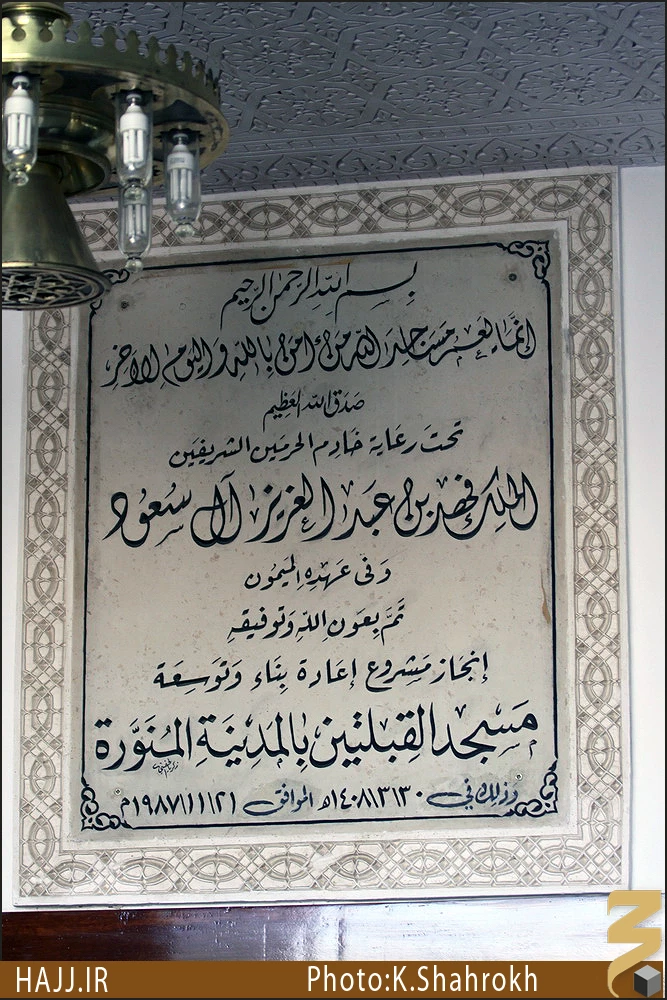 بِسْمِ اللهِ الرَّحْمٰنِ الرَّحِيْمِ
إنَّمَا يَعمُرُ مَسَاجِدَ اللهِ مَنْ اٰمَنَ بِاللهِ وَاليَومِ الآخِرِ
صَدَقَ اللهُ العَظِيم
تحتَ رعَاية خَادِم الحرمَين الشريفَين
الملِك فهد بن عَبد العَزيز آل سعُود
وَفى عَهدِهِ الميمُون
تَمَّ بِعَونِ اللهِ وَتوفيقِهِ
إنجَاز مَشروع إعَادة بِنَاءِ وَتَوسِعَة
مَسجد القِبلتَين بِالمَدِينَةِ المُنَوَّرة
وَذلِك في ١٤٠٨/٣/٣٠هـ الموافِق ١٩٨٧/١١/٢١م
HAJJ.IR
Photo:K.Shahrokh